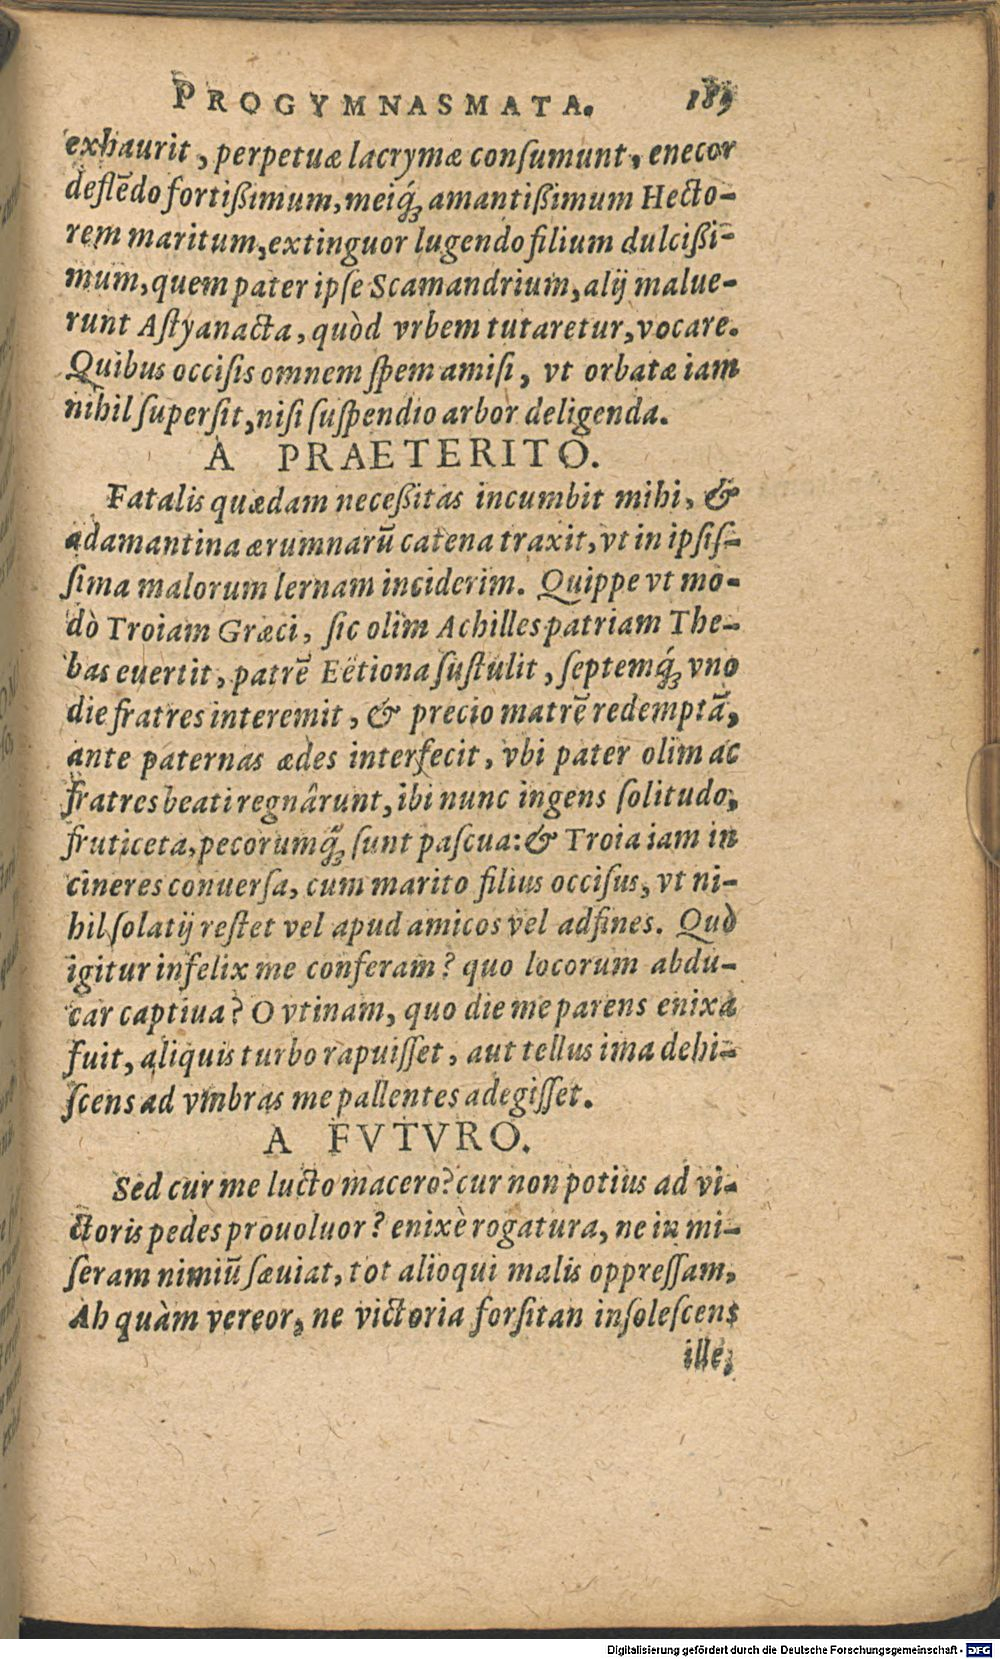 PROGYMNASMATA. 189
exhaurit, perpetuæ lacrymæ conſumunt, enecor
deflēdo fortißimum, meiq́ꝫ amantißimum Hecto-
rem maritum, extinguor lugendo filium dulcißi-
mum, quem pater ipſe Scamandrium, alij malue-
runt Aſtyanacta, quòd vrbem tutaretur, vocare.
Quibus occiſis omnem ſpem amiſi, vt orbatæ iam
nihil ſuperſit, niſi ſuſpendio arbor deligenda.
A PRAETERITO.
Fatalis quædam neceßitas incumbit mihi, &
adamantina ærumnarū catena traxit, vt in ipſiſ-
ſima malorum lernam inciderim. Quippe vt mo-
dò Troiam Græci, ſic olim Achilles patriam The-
bas euertit, patrē Eëtiona ſuſtulit, ſeptemq́ꝫ vno
die fratres interemit, & precio matrē redemptā,
ante paternas ædes interfecit, vbi pater olim ac
fratres beati regnârunt, ibi nunc ingens ſolitudo,
fruticeta, pecorumq́ꝫ ſunt paſcua: & Troia iam in
cineres conuerſa, cum marito filius occiſus, vt ni-
hil ſolatij reſtet vel apud amicos vel adfines. Quò
igitur infelix me conferam? quo locorum abdu-
car captiua? O vtinam, quo die me parens enixa
fuit, aliquis turbo rapuiſſet, aut tellus ima dehi-
ſcens ad vmbras me pallentes adegiſſet.
A FVTVRO.
Sed cur me luctu macero? cur non potius ad vi-
ctoris pedes prouoluor? enixè rogatura, ne in mi-
ſeram nimiū ſæuiat, tot alioqui malis oppreſſam,
Ah quàm vereor, ne victoria forſitan inſoleſcens
ille,
Digitalisierung gefördert durch die Deutsche Forschungsgemeinschaft - DFG